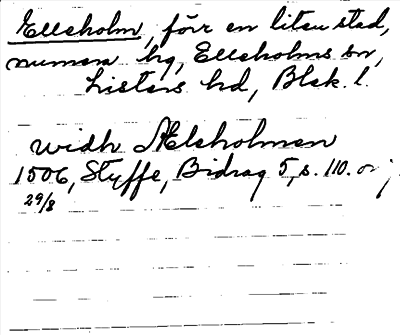 Elleholm, förr en liten stad,
numera hg, Elleholms sn,
Listers hd, Blek. l.
widh Ælsholmen
1506, Styffe, Bidrag 5, s. 110. or
29/8